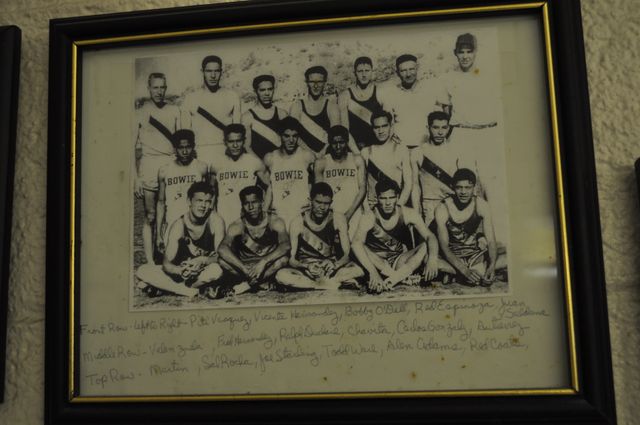 BOWIE
BOWIE
BOWIE
BOWIE
Front Row - Left to Right - Pete Vasquez, Vicente Hernandez, Bobby O'Dell, Red Espinoza, Juan Saldana
Middle Row - Valenzuela Fred Hernandez, Ralph, Chavita, Carlos Gonzalez, Gutierrez
Top Row - Martin, Sal Rocha, Joe Starling, Todd Ware, Allen Adams, Red Coats,